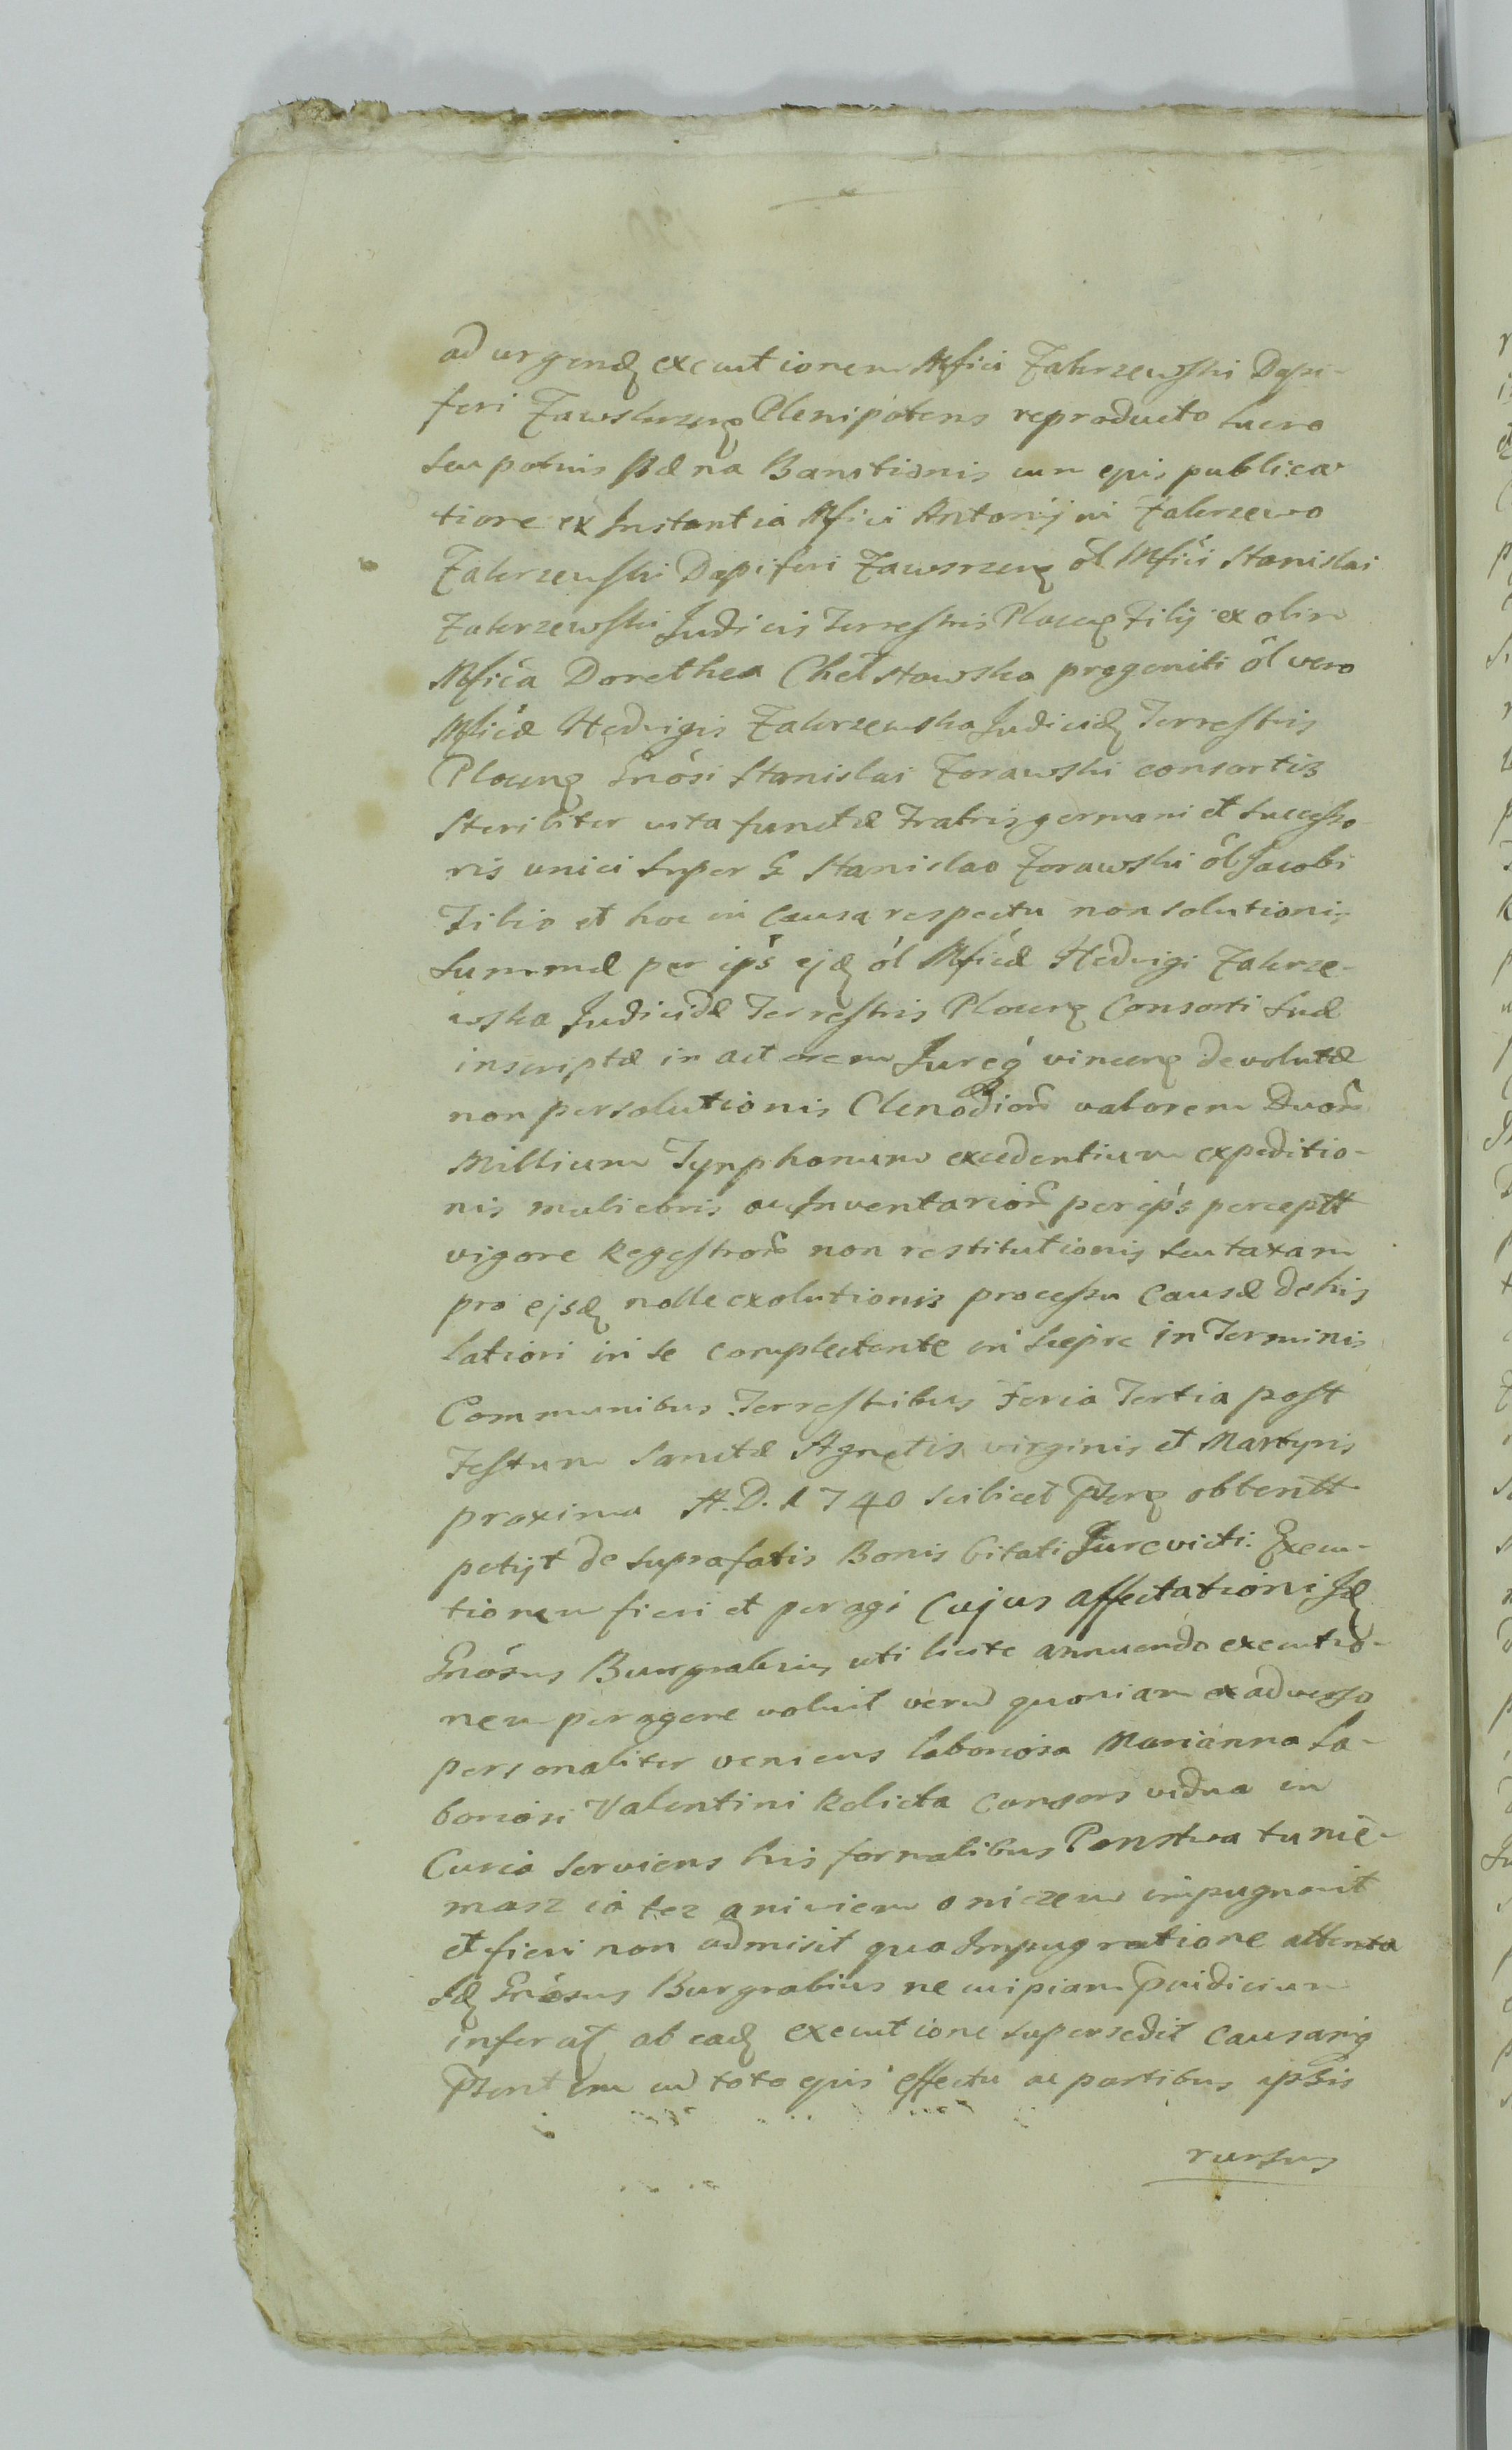 ad urgend executionem Mfici Zakrzewski Dapi-
feri Zawskrzen Plenipotens reproducto lucro
seu potius pæna Bannitionis cum ejus publica-
tione ex Instantia Mfici Antonij in Zakrzewo
Zakrzewski Dapiferi Zawsrzen ol Mfici Stanislai
Zakrzewski Judicis Terrestris Plocen Filij ex olim
Mfica Dorothea Chełstowska progeniti ol vero
Mficæ Hedvigis Zakrzewska Judicid Terrestris
Plocen Gnosi Stanislai Żorawski consortis
steriliter vita functæ Fratris germani et successo-
ris unici super G Stanislao Żorawski ol Jacobi
Filio et hoc in Causa respectu non solutionis
summæ per ips ejd ol Mficæ Hedvigi Zakrze-
wska Judicidæ Terrestris Plocen Consorti suæ
inscriptæ in actorem Jureq vincen devolutæ
non persolutionis Clenodior valorem Duor
Millium Tynphonum excedentium expeditio-
nis muliebris ac Inventarior per ips perceptt
vigore Regestror non restitutionis seu taxam
pro ejsd nolle exolutionis processu Causæ de his
latiori in se complectente in Sieprc in Terminis
Communibus Terrestribus Feria Tertia post
Festum Sanctæ Agnetis virginis et Martyris
proxima A.D. 1740 scilicet obtentt
petijt de suprafatis Bonis Citati Jurevicti Execu-
tionem fieri et peragi Cujus affectationi Id
Gnosus Burgrabius uti licite annuendo executio-
nem peragere voluit verum quoniam ex adverso
personaliter veniens laboriosa Marianna la-
boriosi Valentini Relicta Consors vidua in
Curia serviens his formalibus Panstwa tu nie-
masz ia tez aniwiem o niczem impugnavit
et fieri non admisit qua Impugnatione attenta
Id Gnosus Burgrabius ne cuipiam Pjudicium
inferat ab ead executione supersedit Causamq
Psentem cum toto ejus effectu ac partibus ipsis
rursus